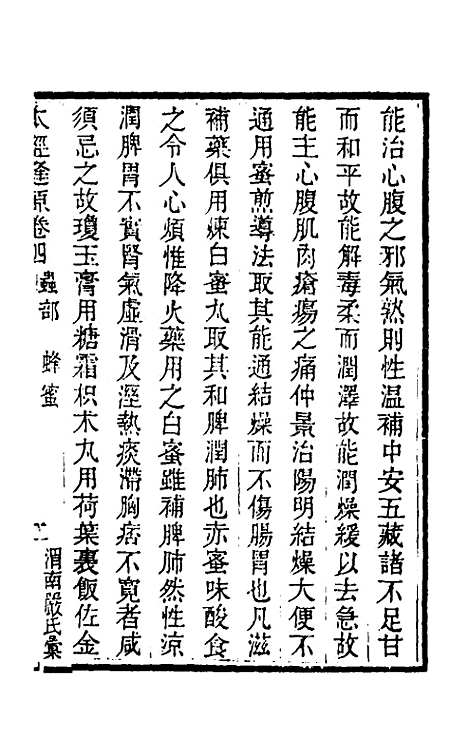 能治心腹之邪氣熟則性温補中安五藏諸不足甘
而和平故能解毒柔而潤澤故能潤燥緩以去急故
能主心腹肌肉瘡瘍之痛仲景治陽明結燥大便不
通用蜜煎導法取其能通結燥而不傷腸胃也凡滋
補藥俱用煉白蜜丸取其和脾潤肺也赤蜜味酸食
之令人心煩惟降火藥用之白蜜雖補脾肺然性涼
潤脾胃不實腎氣虛滑及溼熱痰滯胸痞不寬者咸
須忌之故瓊玉膏用糖霜枳术丸用荷葉裹飯佐金
本經逢原卷四 蟲部 蜂蜜 渭南嚴氏彙